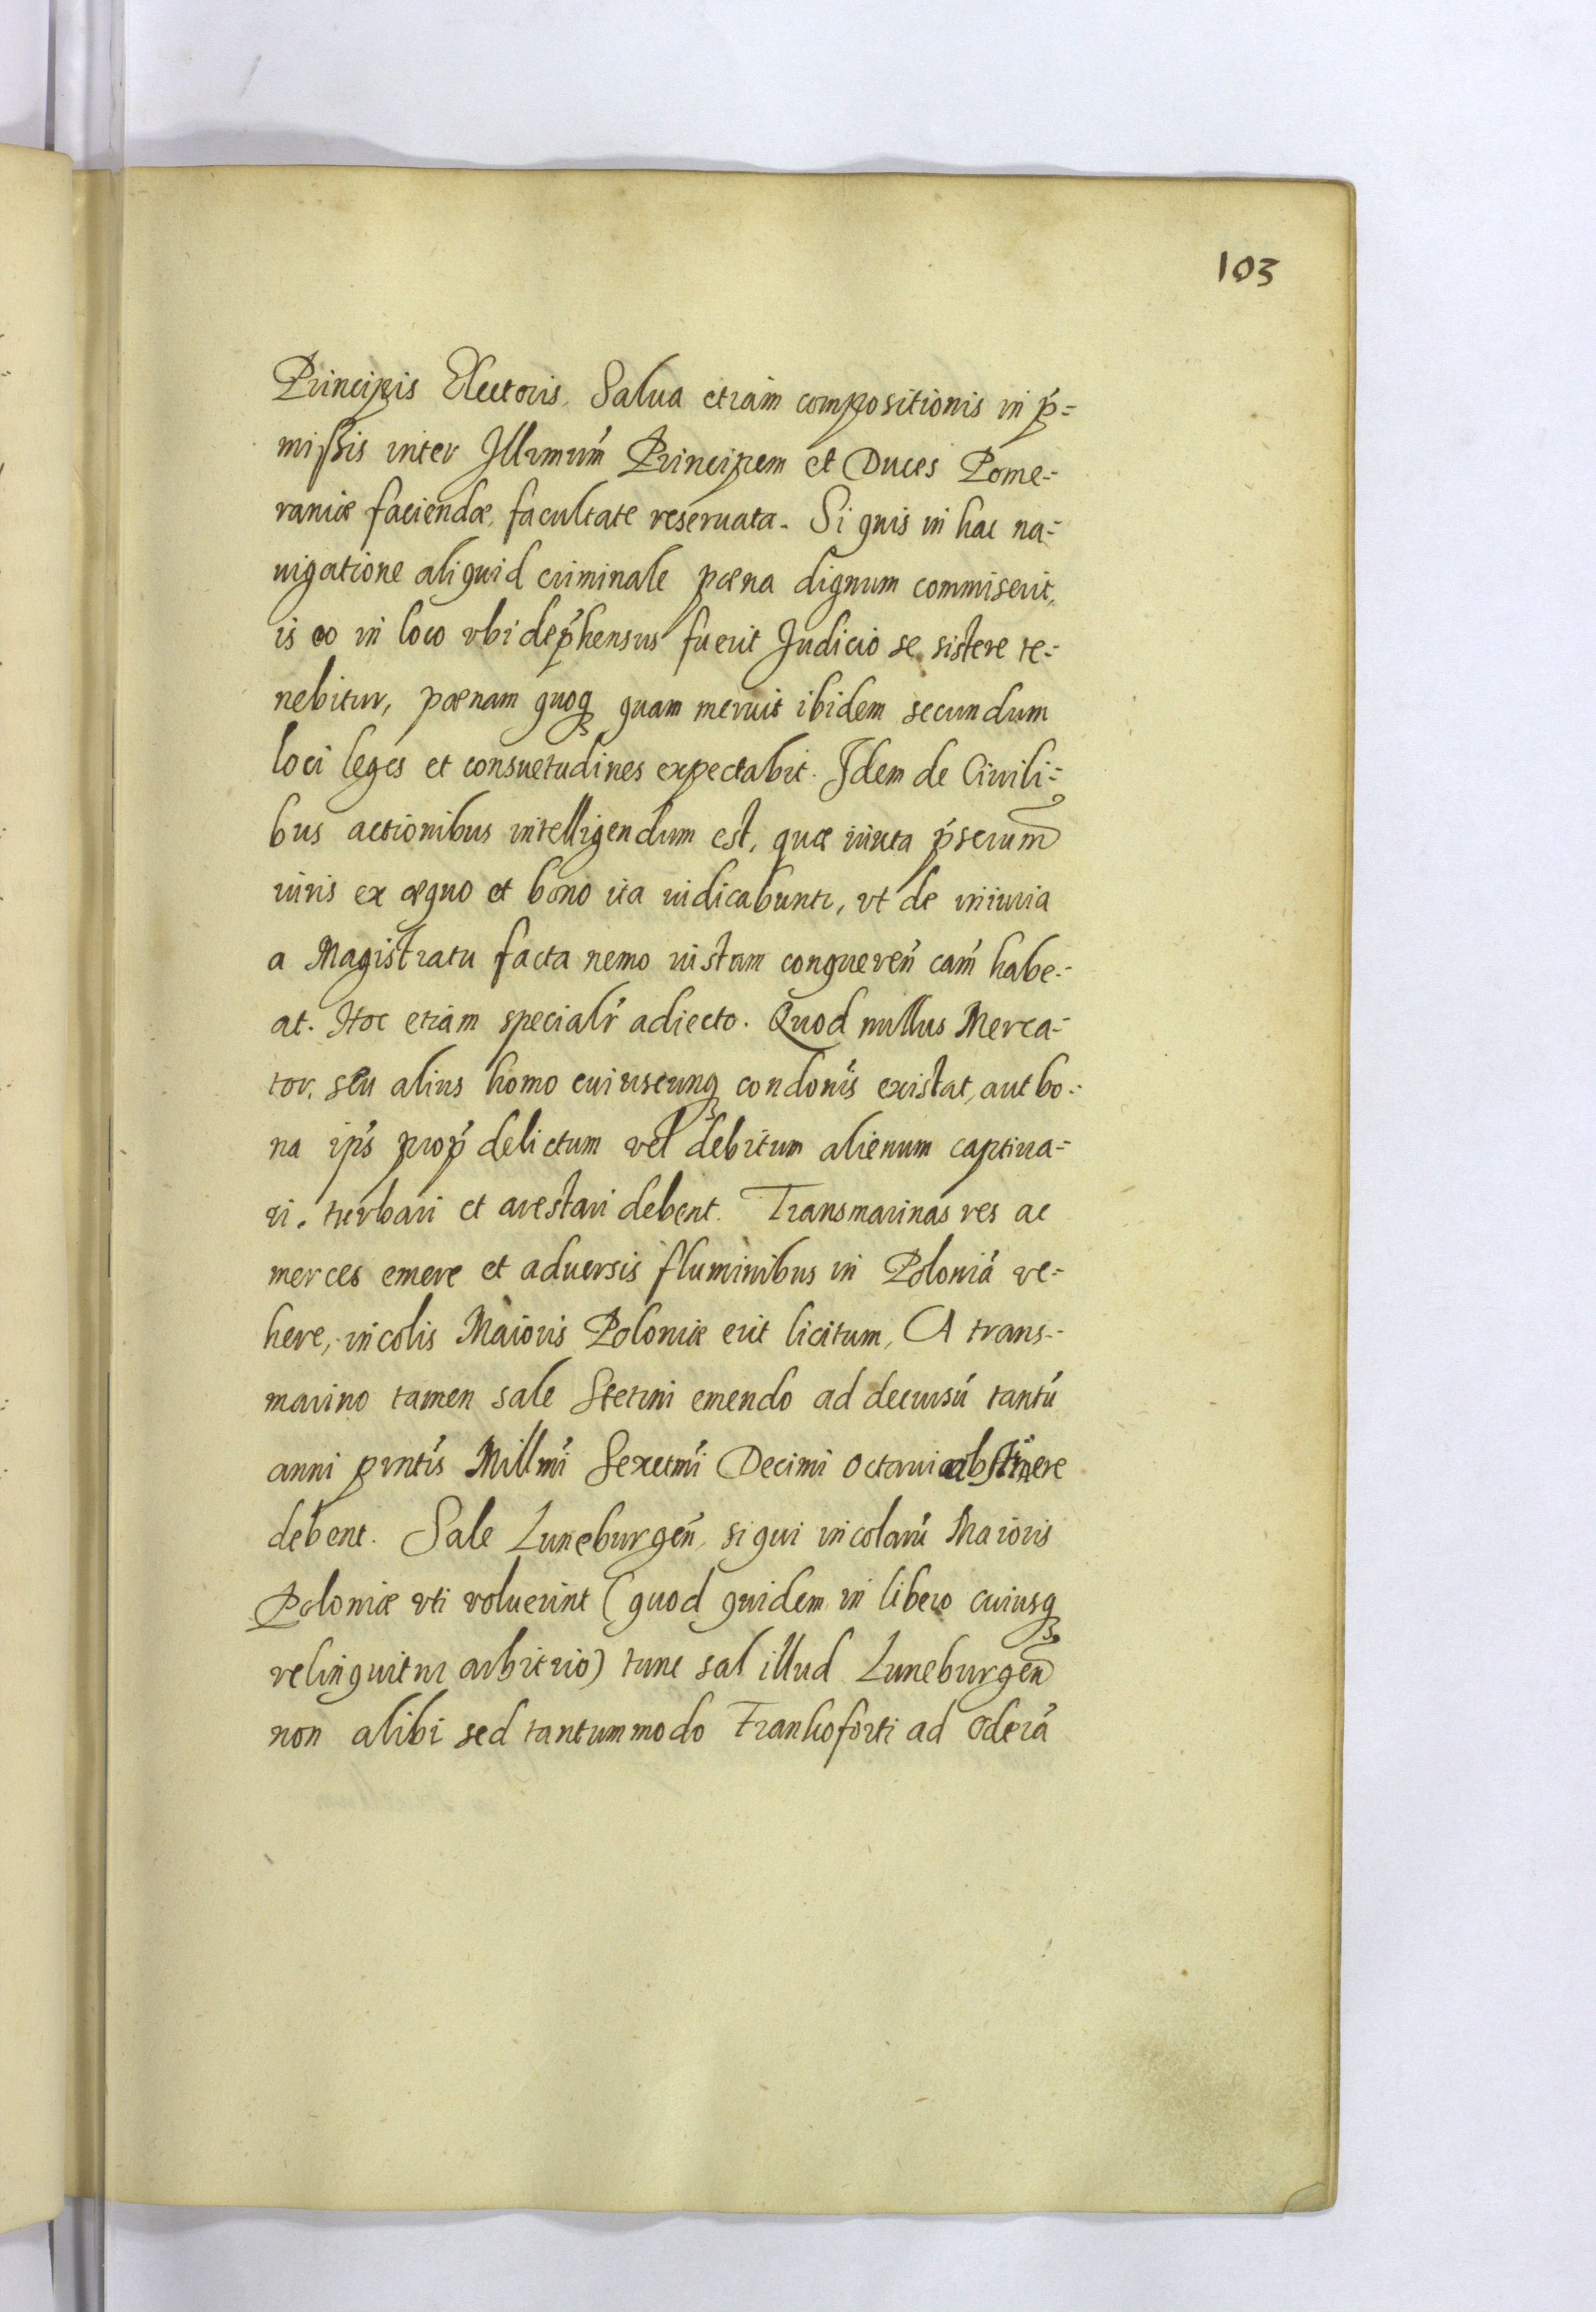 103
Principis Electoris, Salua etiam compositionis in p̃=
missis inter Illrmum̃ Principem et Duces Pome=
raniæ faciendæ, facultate reseruata. Si quis in hac na=
uigatione aliquid criminale pœna dignum commiserit,
is eo in loco vbi dep̃hensus fuerit Judicio se sistere te=
nebitur, pœnam quoq quam meruit ibidem secundum
loci leges et consuetudines expectabit. Idem de Ciuili=
bus actionibus intelligendum est, quæ iuxta p̃scrum
iuris ex æquo et bono ita iudicabuntr, vt de iniuria
a Magistratu facta nemo iustam conqueren̄ cam̃ habe=
at. Hoc etiam specialr̃ adiecto. Quod nullus Merca=
tor, seu alius homo cuiuscunq condonĩs existat, aut bo=
na ip̃s prop̃ delictum vel debitum alienum captiua=
ri. turbari et arestari debent. Transmarinas res ac
merces emere et aduersis fluminibus in Poloniã ve=
here, incolis Maioris Poloniæ erit licitum, A trans=
marino tamen sale Stetini emendo ad decursũ tantũ
anni prntĩs Millmĩ Sexctmĩ Decimi octaui abstinere
debent. Sale Luneburgen̄, si qui incolarũ Maioris
Poloniæ vti voluerint (quod quidem in libero cuiusq
relinquitur arbitrio) tunc sal illud Luneburgen̄
non alibi sed tantummodo Francoforti ad Oderã